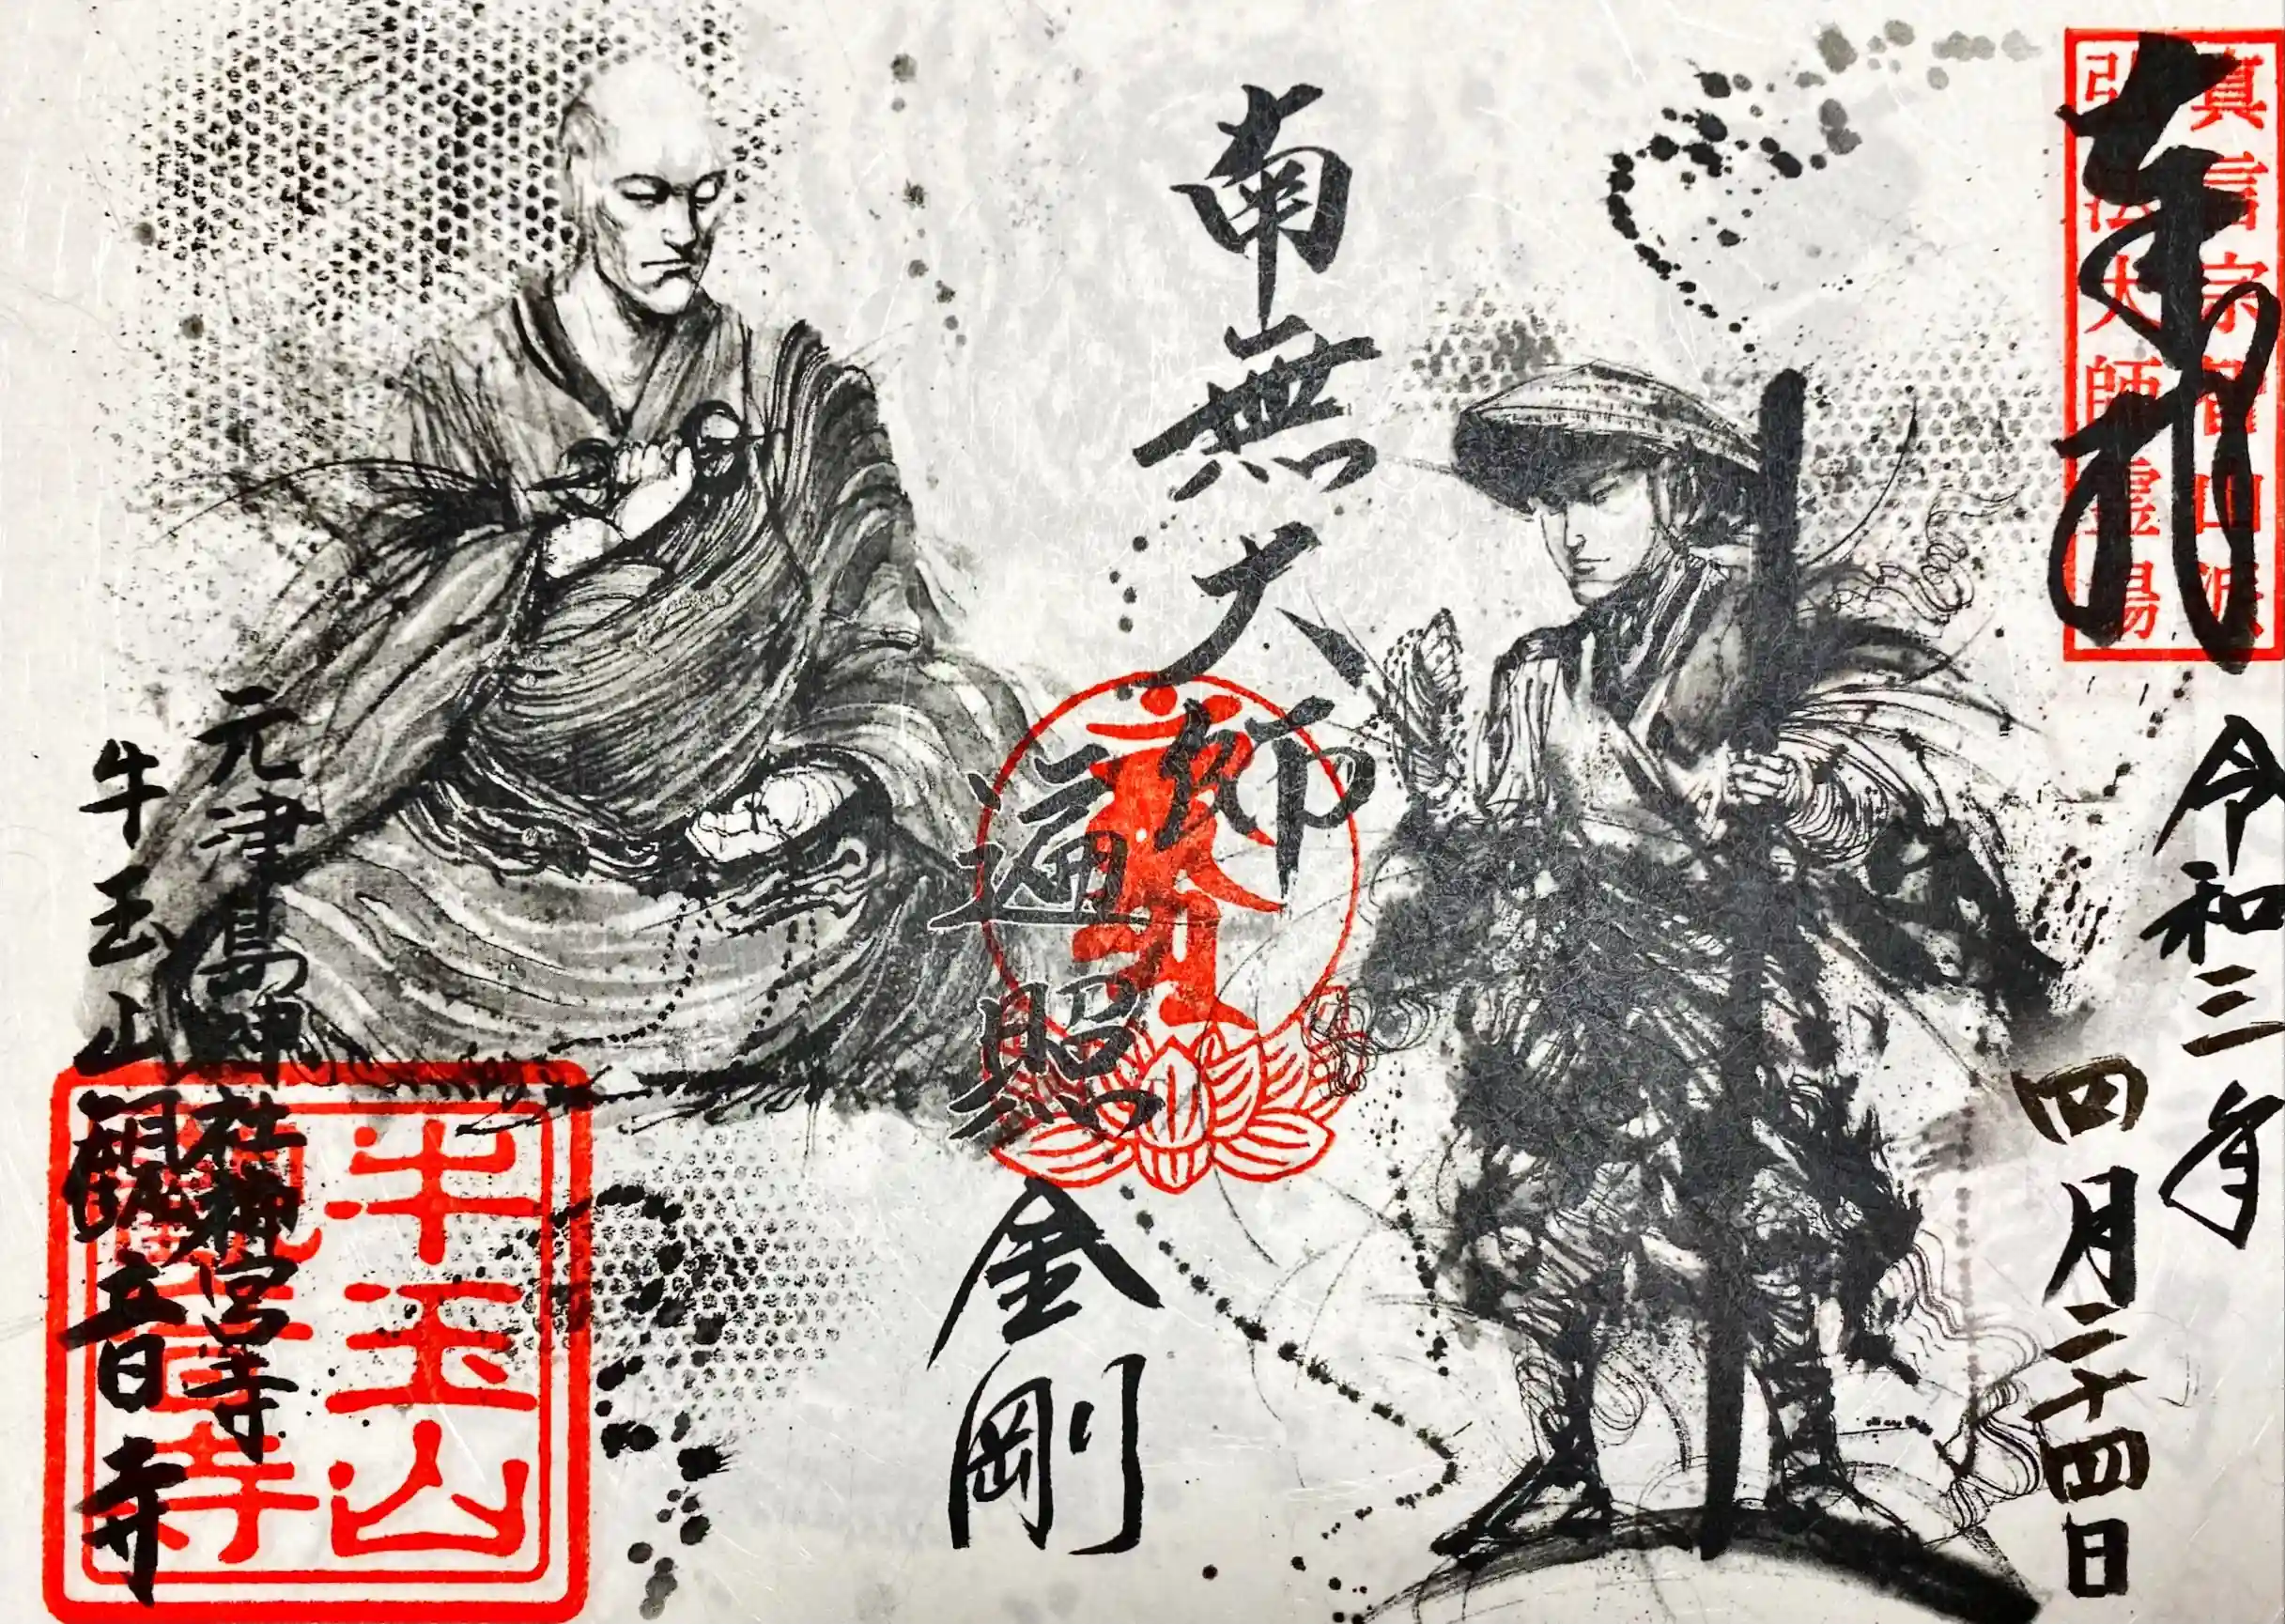 奉拝
真言宗智山派
弘法大師霊場
令和三年
四月二十四日
南無大師
遍照金剛
元津島神社神宮寺
牛玉山観音寺
牛玉山
観音寺